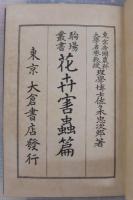 東京帝國農科
大學名譽教授
理學博士佐々木忠次郎著
駒場
叢書
花卉害蟲篇
東京 大倉書店發行